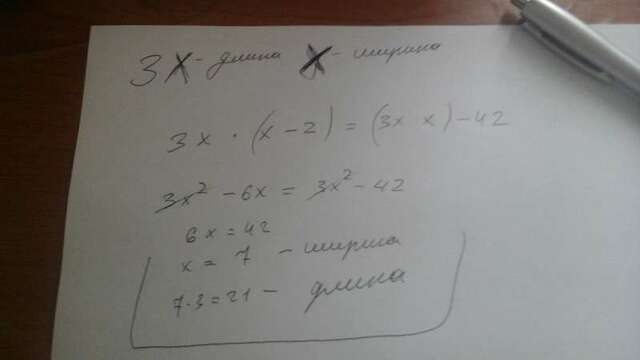 3x - длина x - ширина
3x · (x - 2) = (3x x) - 42
3x² - 6x = 3x² - 42
6x = 42
x = 7 - ширина
7·3=21 - длина